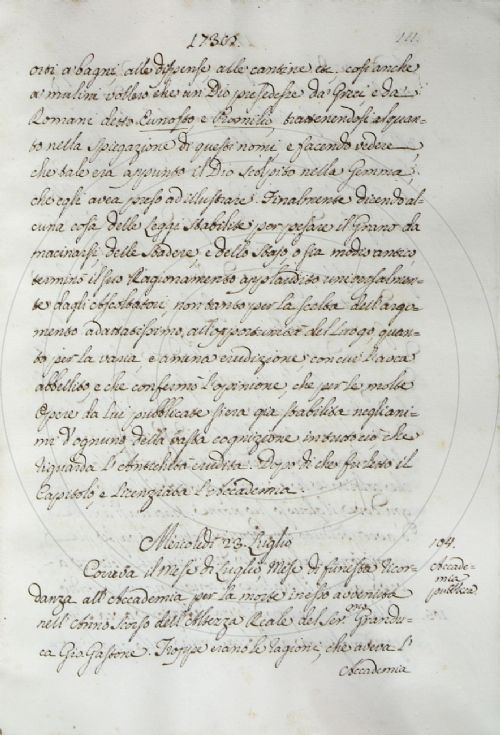 1738.
111.
orti a bagni, alle dispense alle cantine etc. così anche
a mulini vollero che un Dio presiedesse da Greci e da
Romani detto Eunosto e Promilio trattenendosi alquan-
to nella spiegazione di questi nomi e facendo vedere
che tale era appunto il Dio scolpito nella Gemma,
che egli avea preso ad illustrare. Finalmente dicendo al-
cuna cosa delle Leggi stabilite per pesare il Grano da
macinarsi, delle Stadere, e dello Staio o sia modio antico
terminò il suo Ragionamento applaudito universalmen-
te dagli Ascoltatori non tanto per la scelta dell'argo-
mento adattatissimo, all'opportunità del Luogo, quan-
to per la varia, e amena erudizione, con cui l'avea
abbellito, e che confermò l'opinione, che per le molte
Opere da lui pubblicate s'era già stabilita negli ani-
mi d'ognuno della vasta cognizione in tutto ciò che
riguarda l'Antichità erudita. Dopo di che fu letto il
Capitolo e licenziata l'Accademia.
Mercoledì 23 Luglio
104.
Accade-
mia
pubblica
Correva il Mese di Luglio, Mese di funesta ricor-
danza all'Accademia per la morte in esso avvenuta
nell'Anno scorso dell'Altezza Reale del Ser.mo Grandu-
ca Gio Gastone. Troppe erano le ragioni, che aveva l'
Accademia